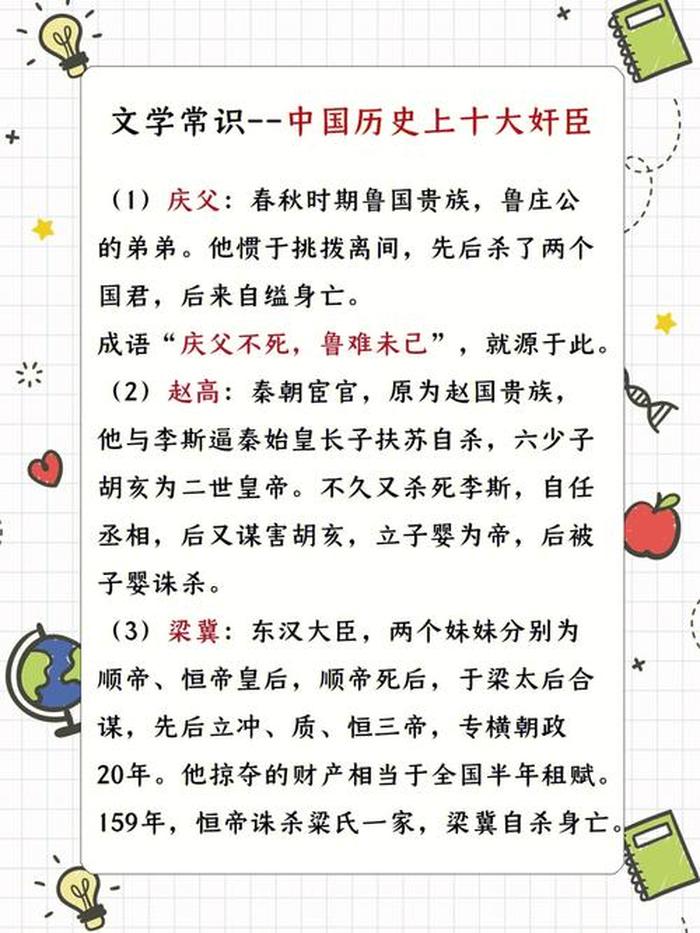 文学常识--中国历史上十大奸臣
（1）庆父：春秋时期鲁国贵族，鲁庄公
的弟弟。他惯于挑拨离间，先后杀了两个
国君，后来自缢身亡。
成语“庆父不死，鲁难未己”，就源于此。
（2）赵高：秦朝宦官，原为赵国贵族，
他与李斯逼秦始皇长子扶苏自杀，六少子
胡亥为二世皇帝。不久又杀死李斯，自任
丞相，后又谋害胡亥，立子婴为帝，后被
子婴诛杀。
（3）梁冀：东汉大臣，两个妹妹分别为
顺帝、恒帝皇后，顺帝死后，于梁太后合
谋，先后立冲、质、恒三帝，专横朝政
20年。他掠夺的财产相当于全国半年租赋。
159年，恒帝诛杀梁氏一家，梁冀自杀身亡。